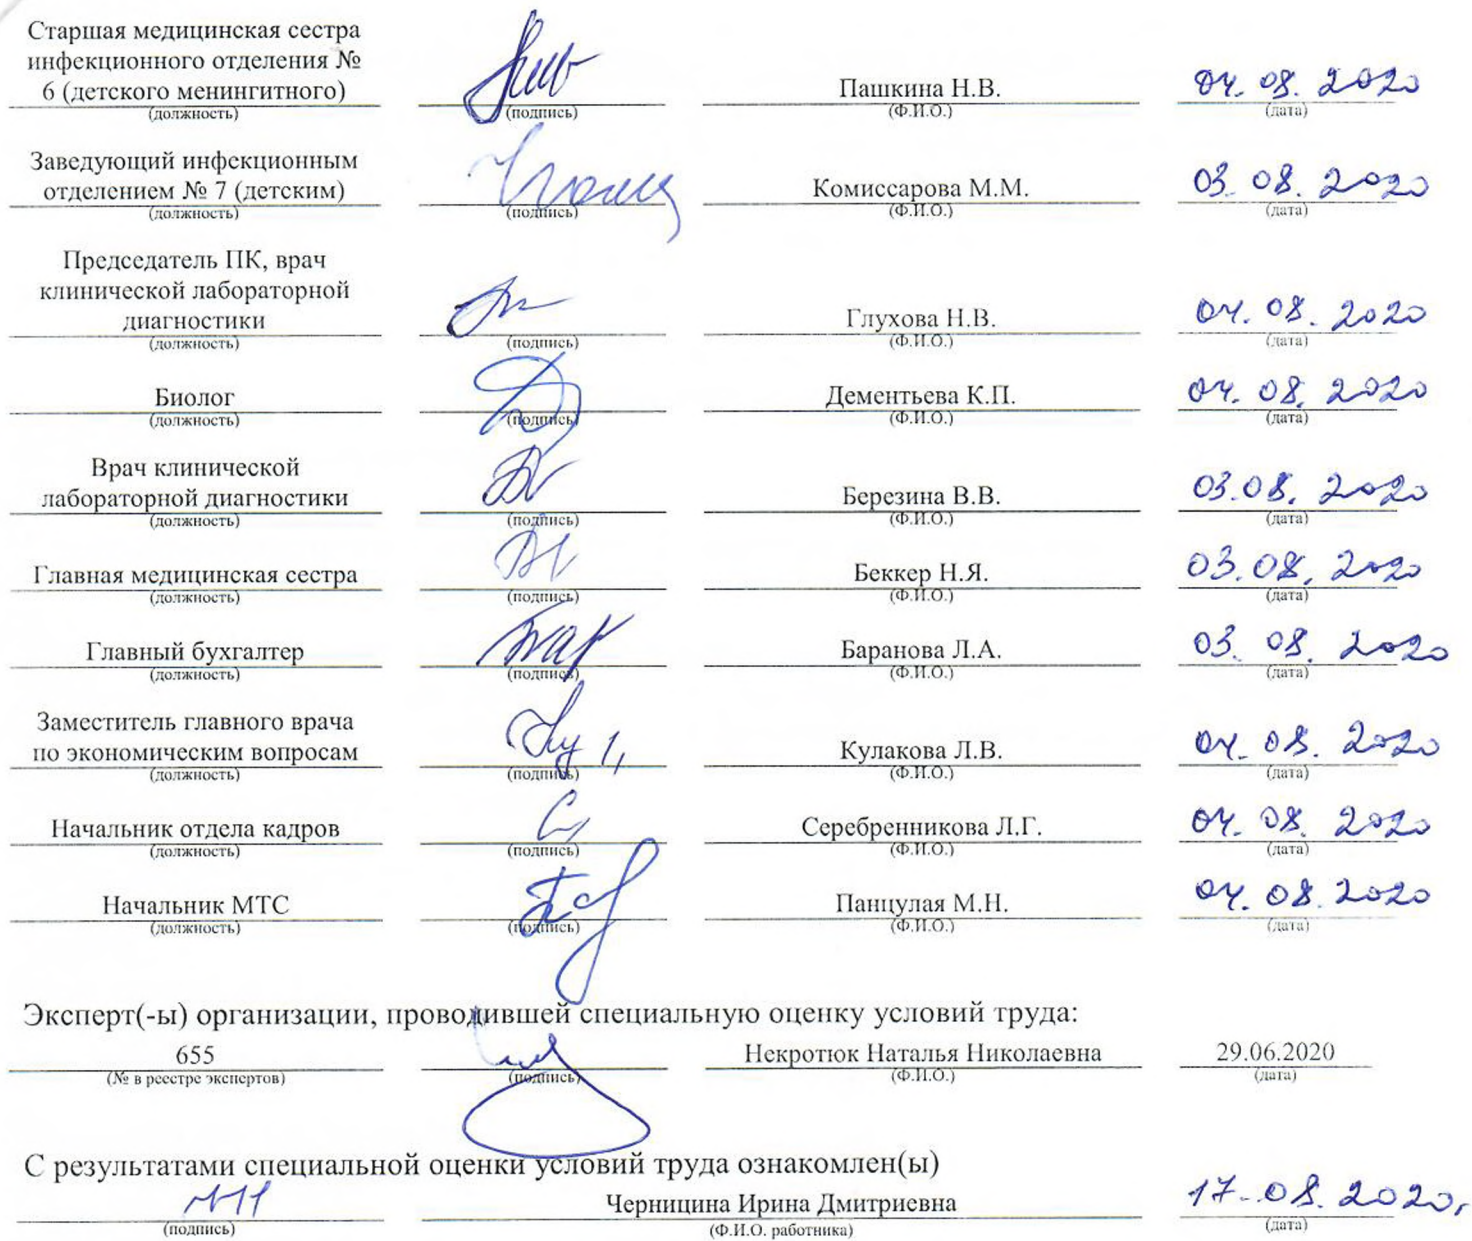 Старшая медицинская сестра
инфекционного отделения №
6 (детского менингитного) Пашкина Н.В. 04.08.2020
(должность) (подпись) (Ф.И.О.) (дата)
Заведующий инфекционным
отделением № 7 (детским) Комиссарова М.М. 03.08.2020
(должность) (подпись) (Ф.И.О.) (дата)
Председатель ПК, врач
клинической лабораторной
диагностики Глухова Н.В. 04.08.2020
(должность) (подпись) (Ф.И.О.) (дата)
Биолог Дементьева К.П. 04.08.2020
(должность) (подпись) (Ф.И.О.) (дата)
Врач клинической
лабораторной диагностики Березина В.В. 03.08.2020
(должность) (подпись) (Ф.И.О.) (дата)
Главная медицинская сестра Беккер Н.Я. 03.08.2020
(должность) (подпись) (Ф.И.О.) (дата)
Главный бухгалтер Баранова Л.А. 03.08.2020
(должность) (подпись) (Ф.И.О.) (дата)
Заместитель главного врача
по экономическим вопросам Кулакова Л.В. 04.08.2020
(должность) (подпись) (Ф.И.О.) (дата)
Начальник отдела кадров Серебренникова Л.Г. 04.08.2020
(должность) (подпись) (Ф.И.О.) (дата)
Начальник МТС Панцулая М.Н. 04.08.2020
(должность) (подпись) (Ф.И.О.) (дата)
Эксперт(-ы) организации, проводившей специальную оценку условий труда:
655 Некротюк Наталья Николаевна 29.06.2020
(№ в реестре экспертов) (подпись) (Ф.И.О.) (дата)
С результатами специальной оценки условий труда ознакомлен(ы)
Черницина Ирина Дмитриевна 17.08.2020г
(подпись) (Ф.И.О. работника) (дата)